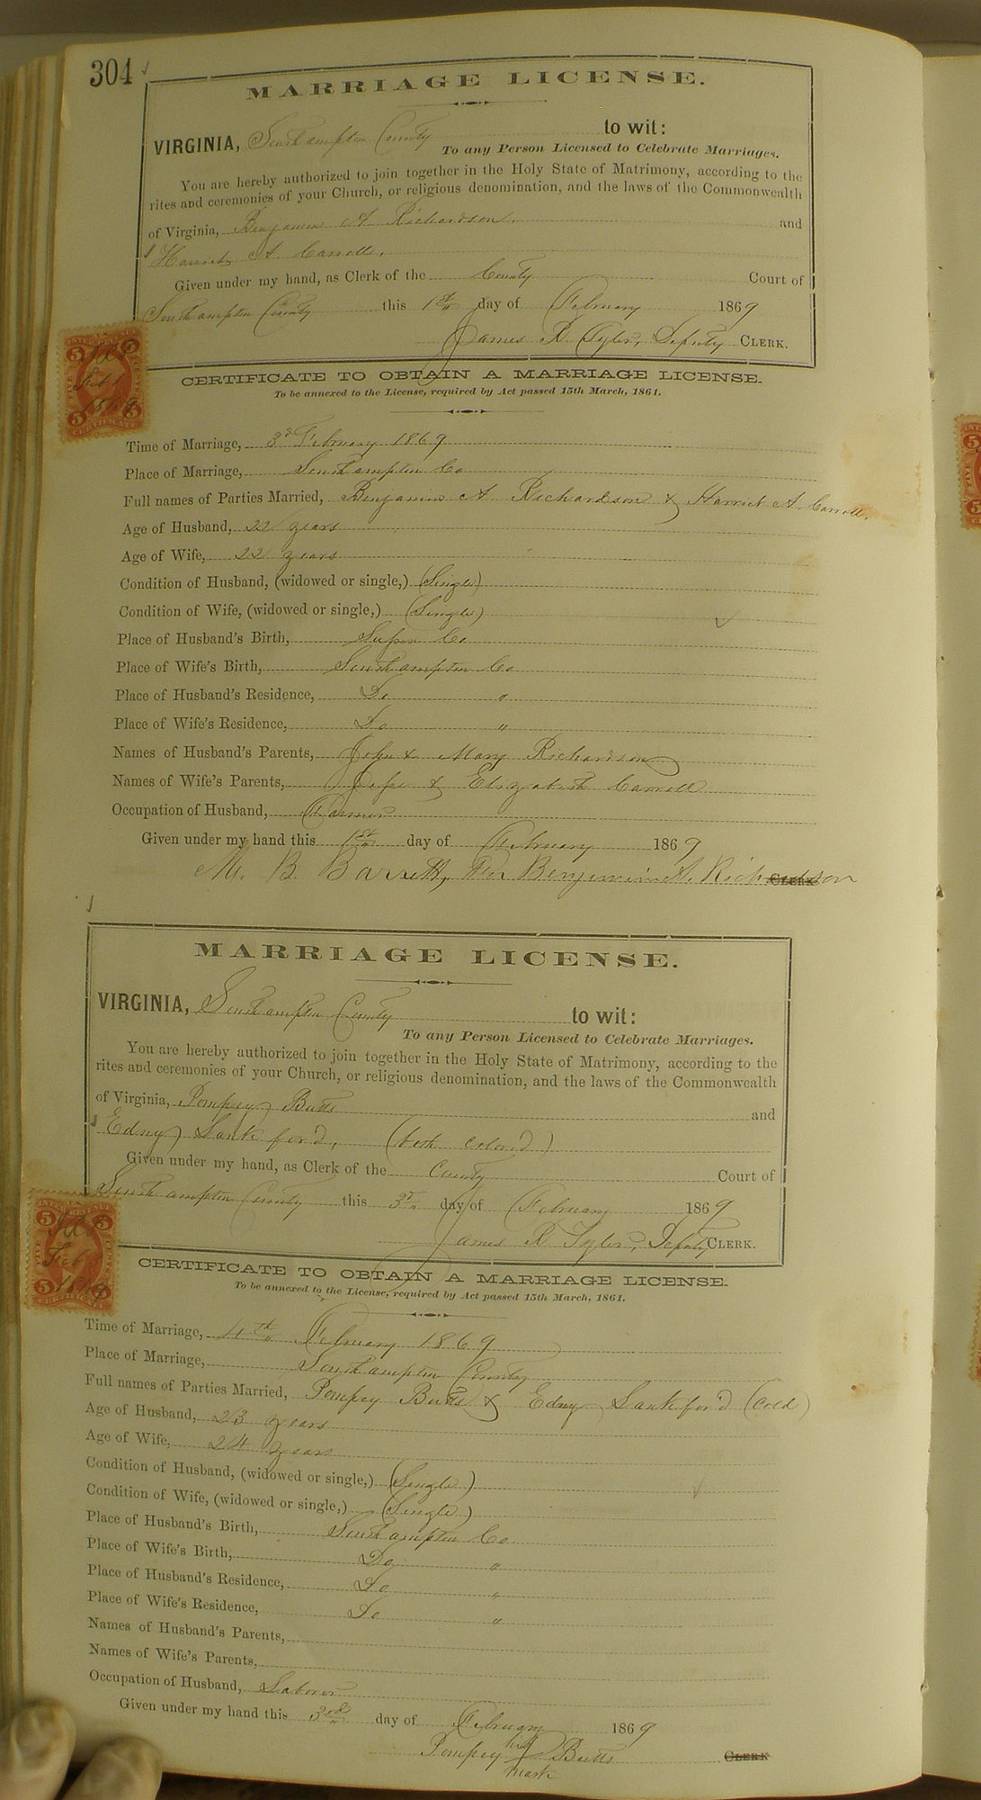 304
MARRIAGE LICENSE.
VIRGINIA, Southampton County to wit:
To any Person Licensed to Celebrate Marriages.
You are hereby authorized to join together in the Holy State of Matrimony, according to the
rites and ceremonies of your Church, or religious denomination, and the laws of the Commonwealth
of Virginia, Benjamin A. Richardson and
Harriet A. Carroll.
Given under my hand, as Clerk of the County Court of
Southampton County this 1st day of February 1869
James R Tyler, Deputy CLERK.
CERTIFICATE TO OBTAIN A MARRIAGE LICENSE.
To be annexed to the License, required by Act passed 15th March, 1861.
Time of Marriage, 3d February 1869
Place of Marriage, Southampton Co
Full names of Parties Married, Benjamin A. Richardson & Harriet A. Carroll.
Age of Husband, 22 years
Age of Wife, 22 years
Condition of Husband, (widowed or single,) (Single)
Condition of Wife, (widowed or single,) (Single)
Place of Husband's Birth, Co
Place of Wife's Birth, Southampton Co
Place of Husband's Residence, Do "
Place of Wife's Residence, Do "
Names of Husband's Parents, John & Mary Richardson
Names of Wife's Parents, & Elizabeth Carroll
Occupation of Husband, Farmer
Given under my hand this 1st day of February 1869
M. B. Barrett, Per Benjamin A. Richardson CLERK
MARRIAGE LICENSE.
VIRGINIA, Southampton County to wit:
To any Person Licensed to Celebrate Marriages.
You are hereby authorized to join together in the Holy State of Matrimony, according to the
rites and ceremonies of your Church, or religious denomination, and the laws of the Commonwealth
of Virginia, Pompey Butts and
Edny Lankford, (both colored)
Given under my hand, as Clerk of the County Court of
Southampton County this 3d day of February 1869
James R Tyler, Deputy CLERK.
CERTIFICATE TO OBTAIN A MARRIAGE LICENSE.
To be annexed to the License, required by Act passed 15th March, 1861.
Time of Marriage, 4th February 1869
Place of Marriage, Southampton County
Full names of Parties Married, Pompey Butts & Edny Lankford (cold)
Age of Husband, 23 years
Age of Wife, 24 years
Condition of Husband, (widowed or single,) (Single)
Condition of Wife, (widowed or single,) (Single)
Place of Husband's Birth, Southampton Co
Place of Wife's Birth, Do "
Place of Husband's Residence, Do "
Place of Wife's Residence, Do "
Names of Husband's Parents,
Names of Wife's Parents,
Occupation of Husband, Laborer
Given under my hand this 3rd day of February 1869
Pompey his Butts CLERK
mark